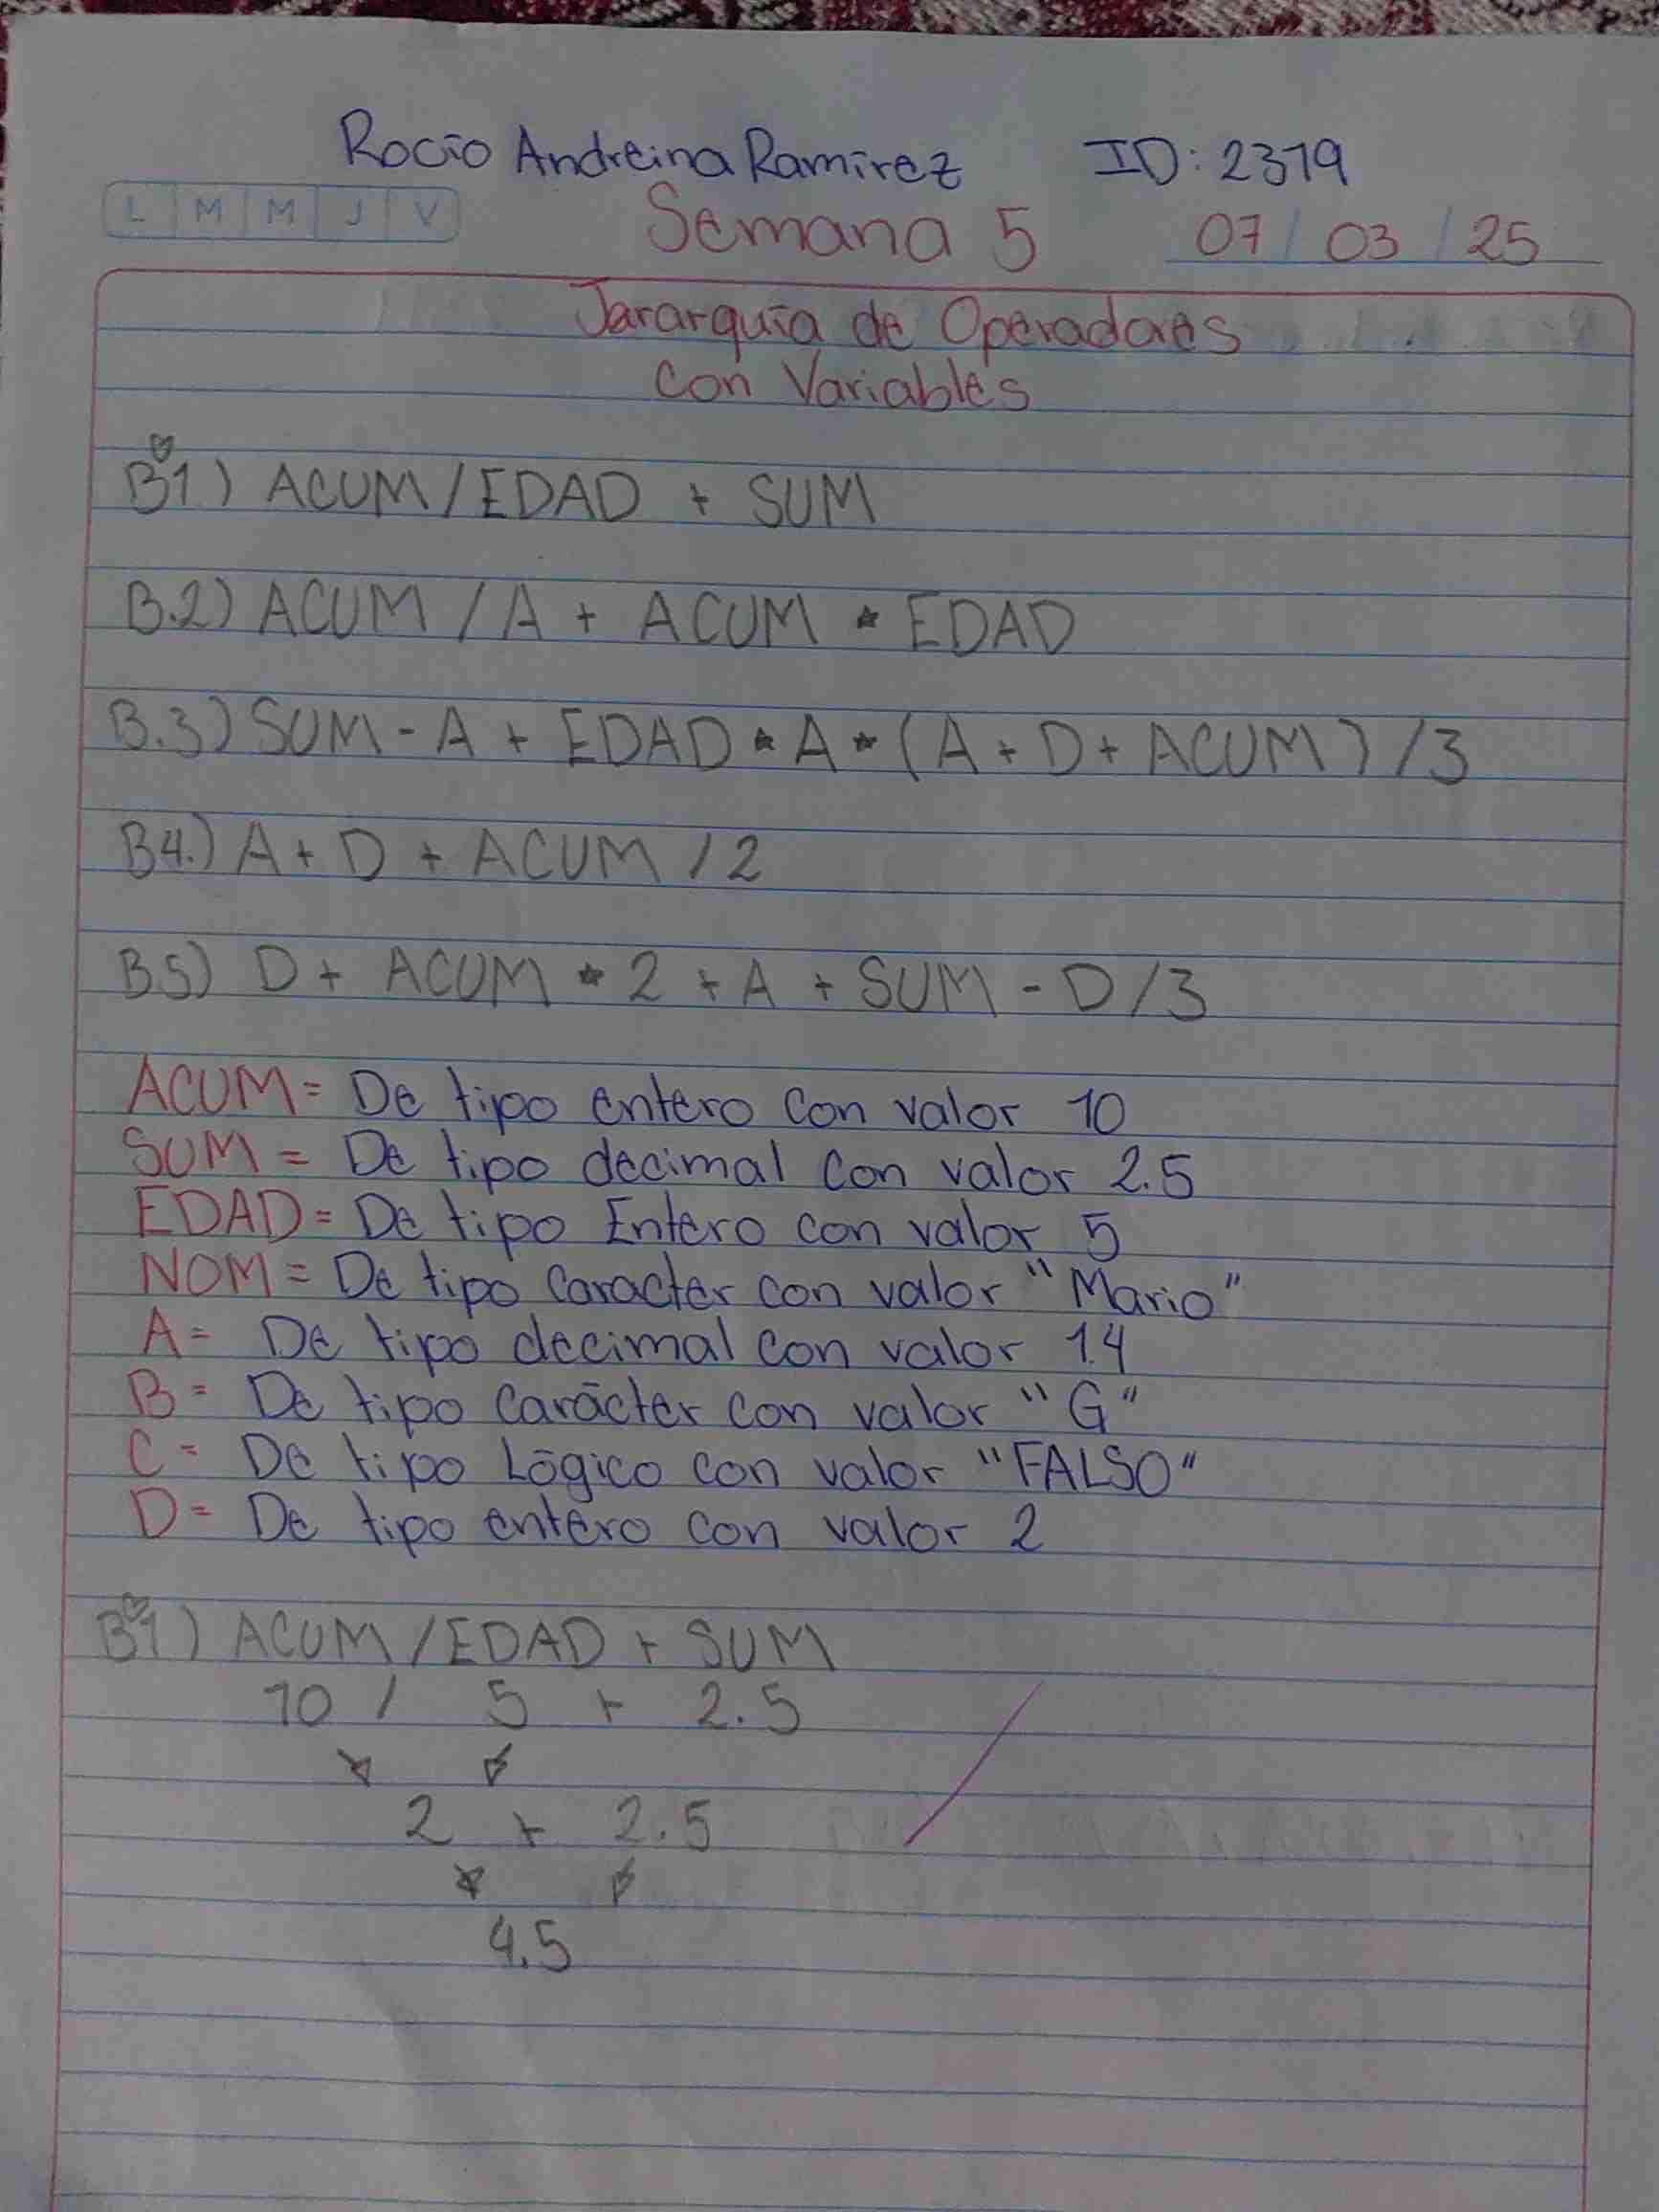 Rocío Andreina Ramírez ID: 2379
L M M J V Semana 5 07/03/25
Jararquía de Operadores
Con Variables
B1) ACUM/EDAD + SUM
B.2) ACUM / A + ACUM * EDAD
B.3) SUM - A + EDAD * A * (A + D + ACUM) /3
B4.) A + D + ACUM / 2
B.5) D + ACUM * 2 + A + SUM - D/3
ACUM = De tipo entero con valor 10
SUM = De tipo decimal con valor 2.5
EDAD = De tipo Entero con valor 5
NOM = De tipo Caracter con valor "Mario"
A = De tipo decimal con valor 1.4
B = De tipo Carácter con valor "G"
C = De tipo Lógico con valor "FALSO"
D = De tipo entero con valor 2
B1) ACUM/EDAD + SUM
10 / 5 + 2.5
2 + 2.5
4.5